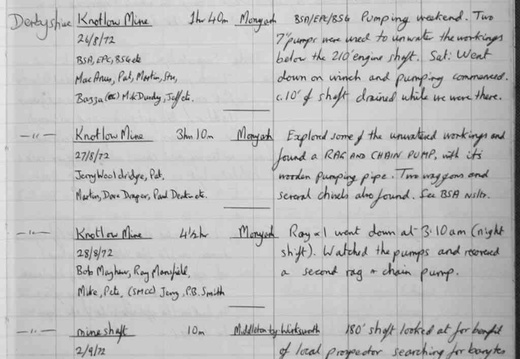 Derbyshire Knotlow Mine 1h 40m Monyash BSA/EPC/BSG Pumping weekend. Two
26/8/72 7" pumps were used to unwater the workings
BSA, EPC, BSG etc below the 210' engine shaft. Sat: Went
Mac Anus, Pat, Martin, Stu, down on winch and pumping commenced.
Bossa Mick Dundy, Jeff etc. c.10' of shaft drained while we were there.
-"- Knotlow Mine 3hr 10m Monyash Explored some of the unwatered workings and
27/8/72 found a RAG AND CHAIN PUMP, with its
Jerry Wooldridge, Pat, wooden pumping pipe. Two waggons and
Martin, Dave Draper, Paul Deakin etc. several chisels also found. See BSA nsltr.
-"- Knotlow Mine 4½hr Monyash Ray + I went down at 3.10am (night
28/8/72 shift). Watched the pumps and recovered
Bob Mayhew, Ray Mansfield, a second rag + chain pump.
Mike, Pete, (SMCC) Jerry, P.B. Smith
-"- mine shaft 10m Middleton by Wirksworth 180' shaft looked at for benefit
2/9/72 of local prospector searching for barytes